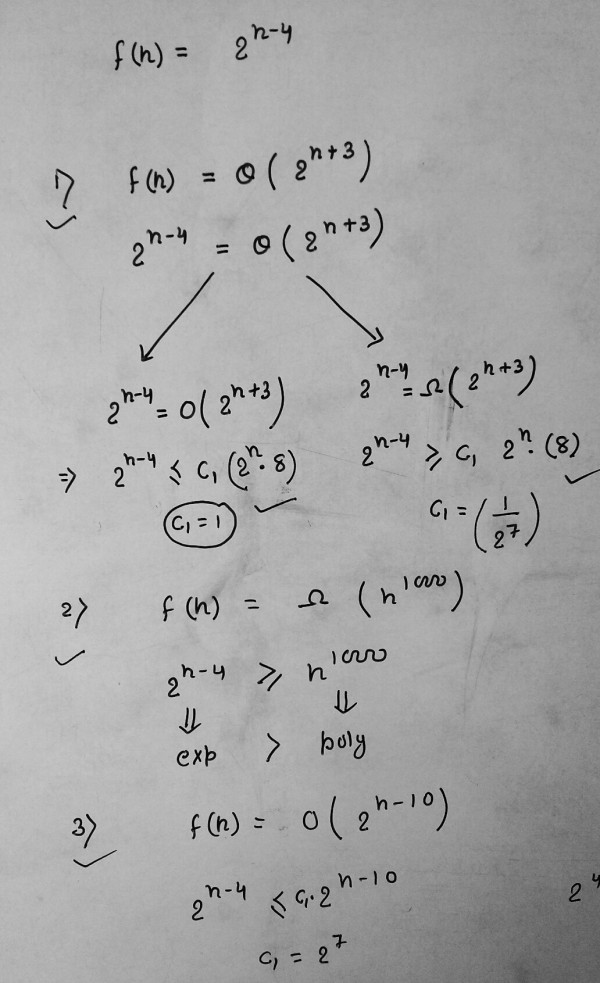 f(n) = 2^{n-4}
1) f(n) = Θ(2^{n+3})
2^{n-4} = Θ(2^{n+3})
2^{n-4} = O(2^{n+3})
⇒ 2^{n-4} ≤ C₁(2^n·8)
C₁ = 1
2^{n-4} = Ω(2^{n+3})
2^{n-4} ≥ C₁ 2^n·(8)
C₁ = (1/2^7)
2) f(n) = Ω(n^{1000})
2^{n-4} ≥ n^{1000}
⇓ ⇓
exp > poly
3) f(n) = O(2^{n-10})
2^{n-4} ≤ C₁·2^{n-10}
C₁ = 2^7
2^4